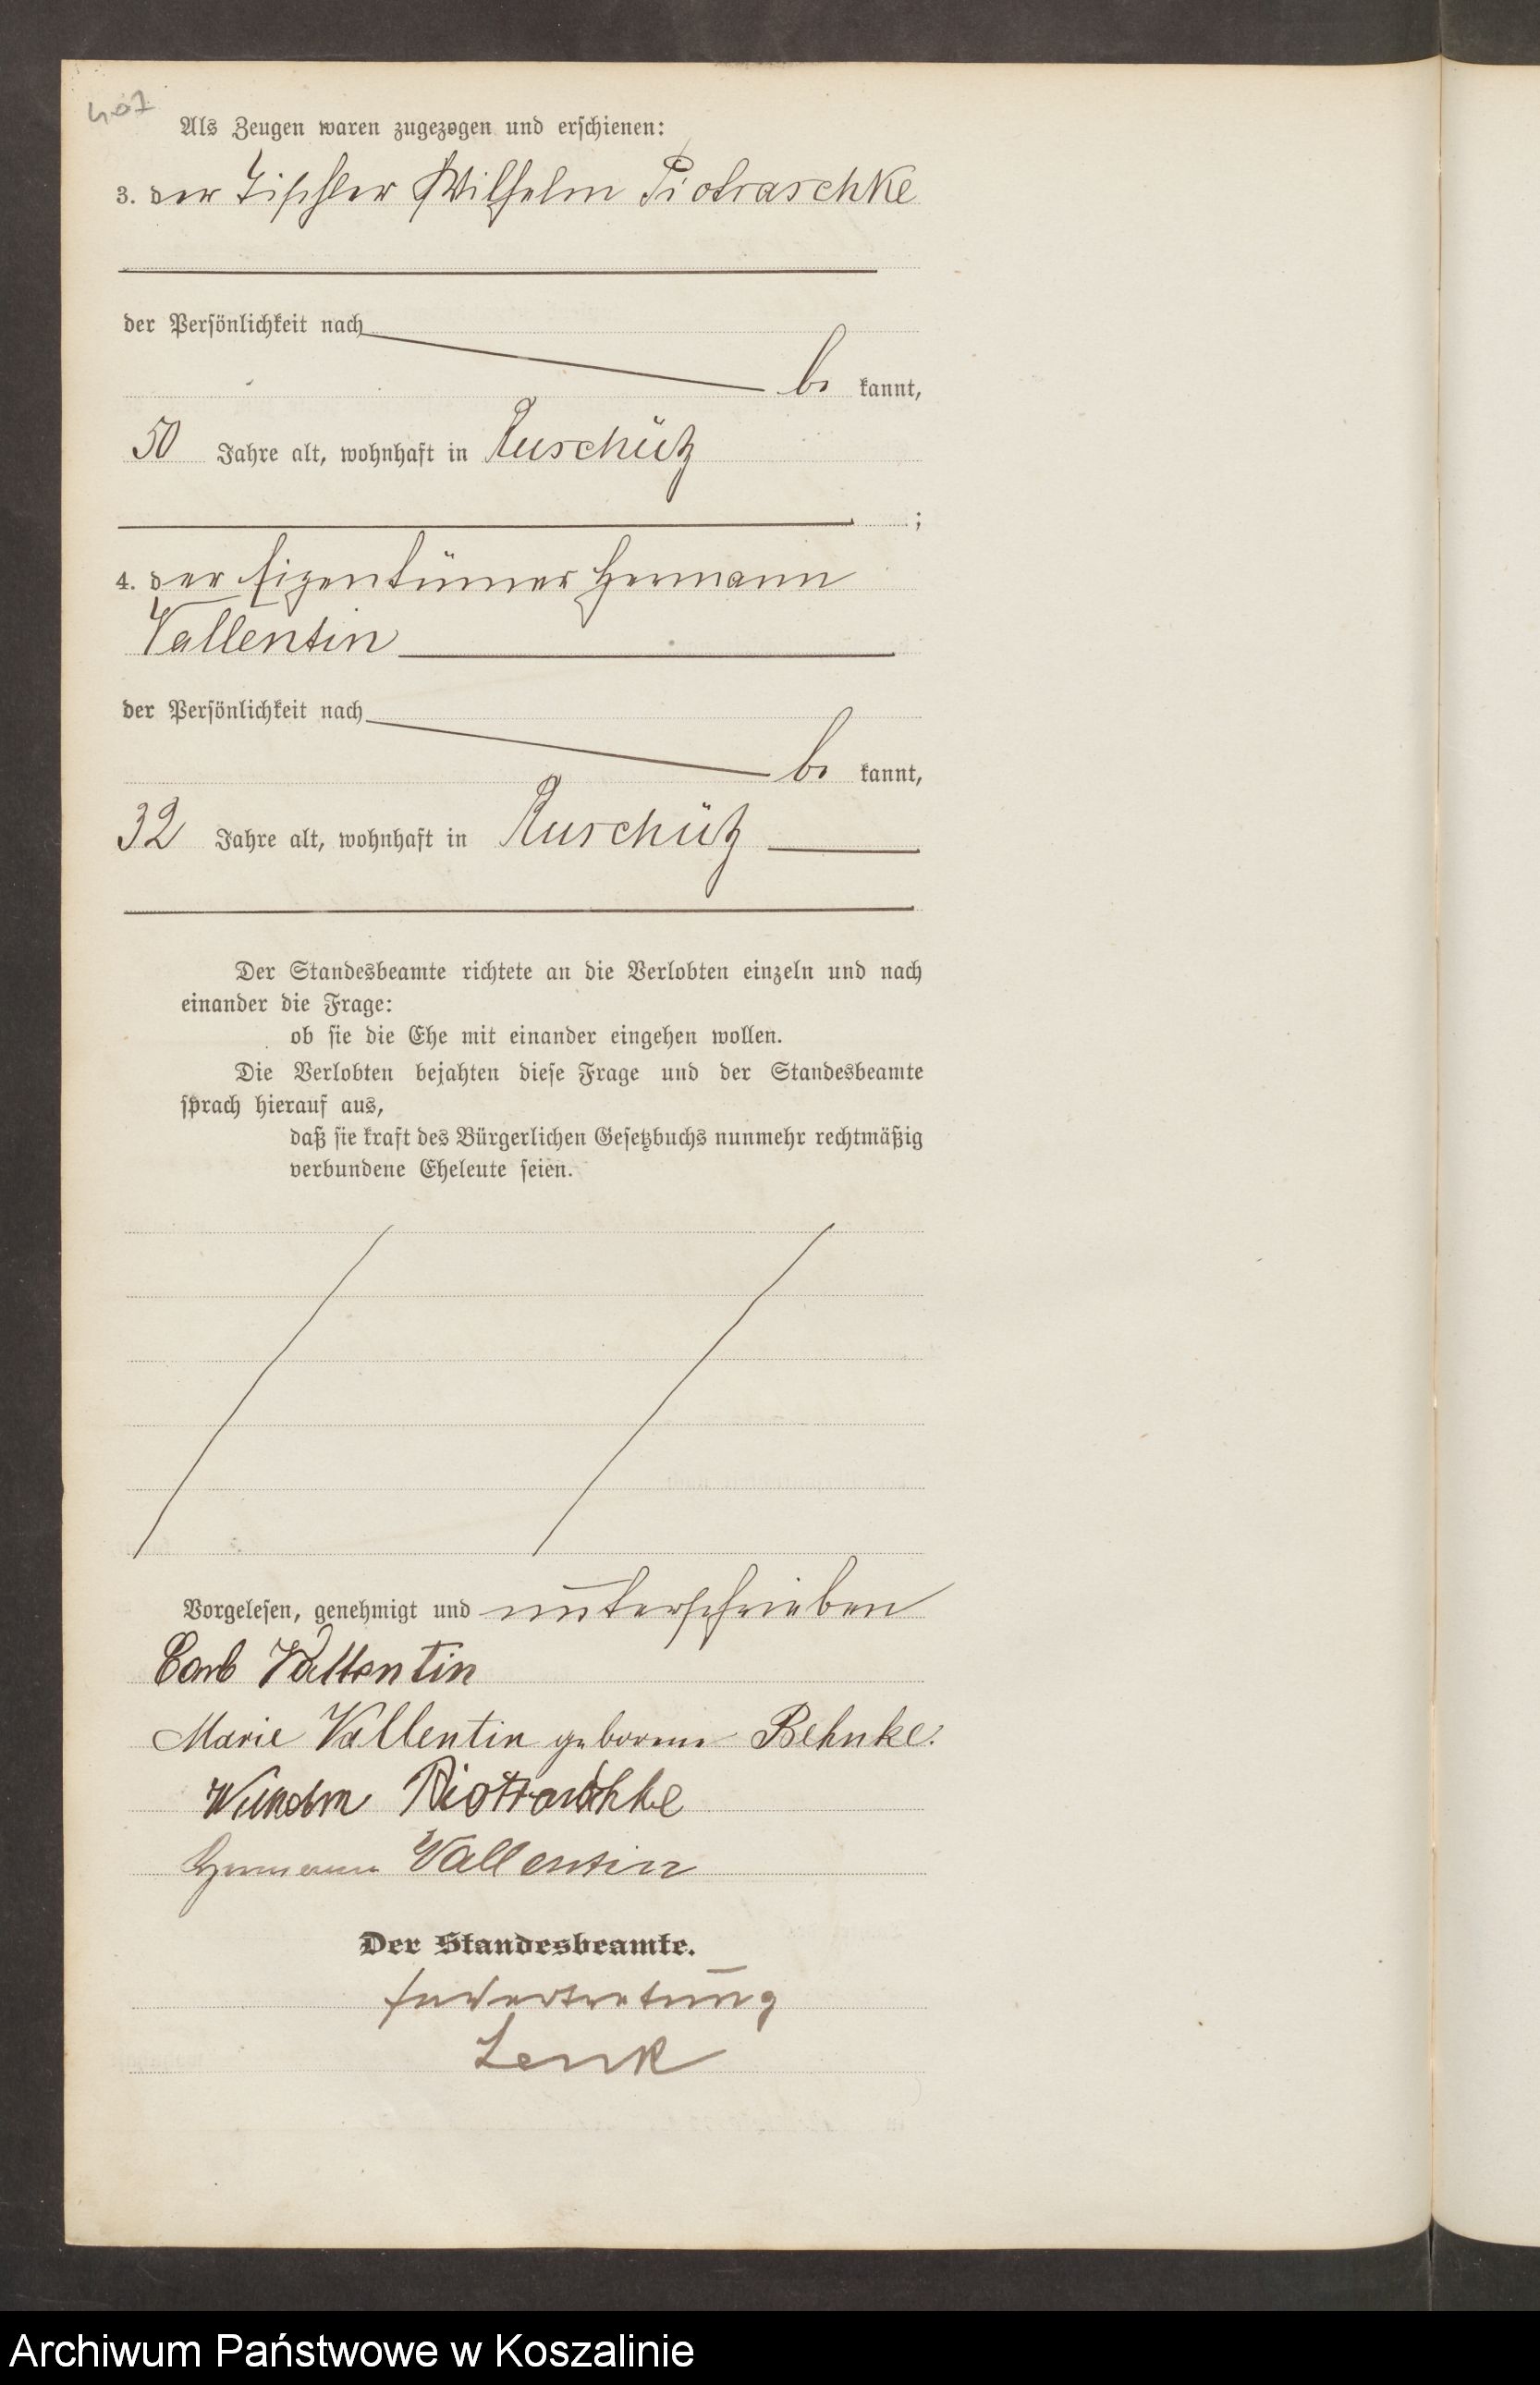 407
Als Zeugen waren zugezogen und erschienen:
3. der Tischler Wilhelm Piotraschke
der Persönlichkeit nach
be kannt,
50 Jahre alt, wohnhaft in Ruschütz
;
4. der Eigentümer Hermann
Vallentin
der Persönlichkeit nach
be kannt,
32 Jahre alt, wohnhaft in Ruschütz
Der Standesbeamte richtete an die Verlobten einzeln und nach
einander die Frage:
ob sie die Ehe mit einander eingehen wollen.
Die Verlobten bejahten diese Frage und der Standesbeamte
sprach hierauf aus,
daß sie kraft des Bürgerlichen Gesetzbuchs nunmehr rechtmäßig
verbundene Eheleute seien.
Vorgelesen, genehmigt und unterschrieben
Carl Vallentin
Marie Vallentin geborene Behnke.
Wilhelm Piotraschke
Hermann Vallentin
Der Standesbeamte.
In Vertretung
Lenk
Archiwum Państwowe w Koszalinie